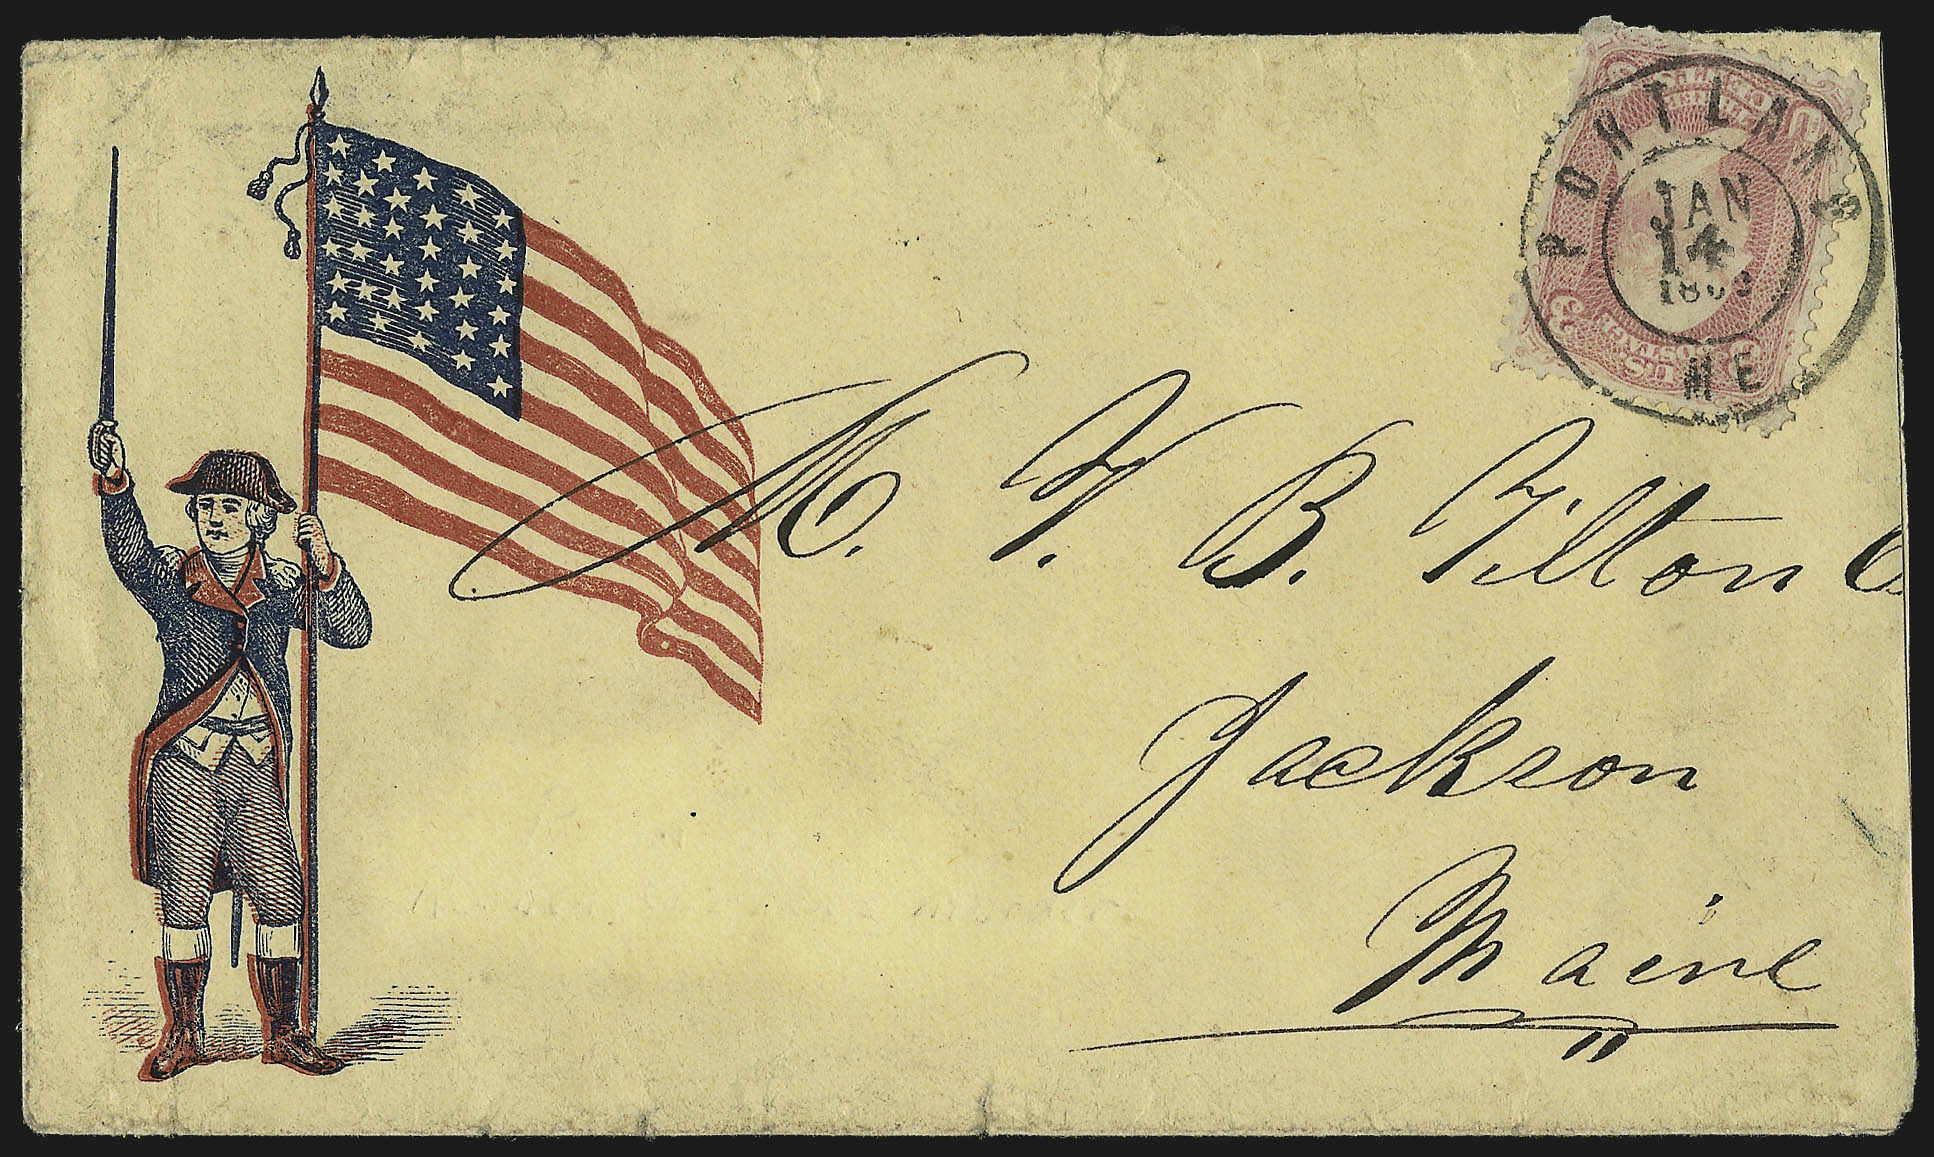 PORTLAND
JAN
14
1863
ME
THREE
CENTS
U.S.
POSTAGE
3 3
M. V. B. Tilton
Jackson
Maine